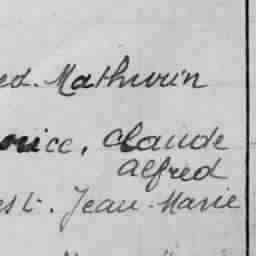 ed. Mathurin
orice, Claude
Alfred
st. Jean-Marie